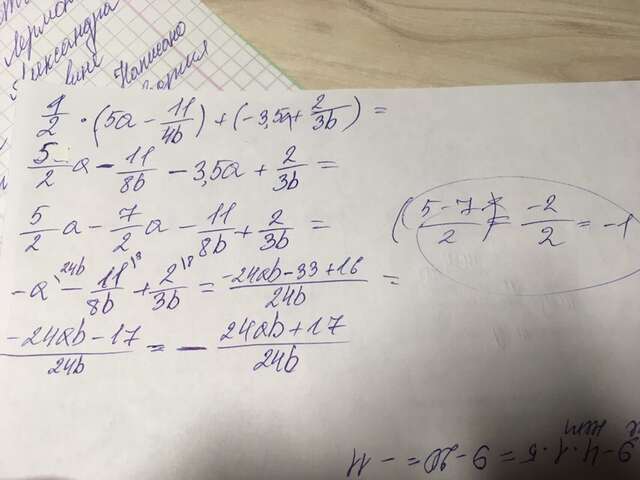 Лермон
Александра
Написано
1/2 · (5a - 11/4b) + (-3,5a + 2/3b) =
5/2 a - 11/8b - 3,5a + 2/3b =
5/2 a - 7/2 a - 11/8b + 2/3b =
(5-7)/2 = -2/2 = -1
-a\24b - 11/8b\3 + 2/3b\8 = (-24ab-33+16)/24b =
(-24ab-17)/24b = - (24ab+17)/24b
9-4·1·5=9-20=-11